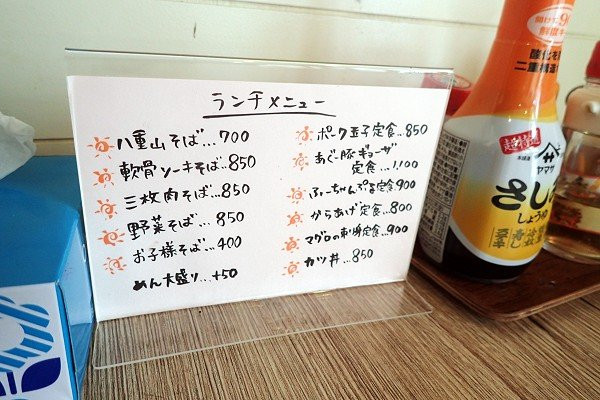 ランチメニュー
八重山そば...700
軟骨ソーキそば..850
三枚肉そば...850
野菜そば...850
お子様そば...400
めん大盛り...+50
ポーク玉子定食...850
あぐー豚ギョーザ
定食...1,100
ふーちゃんぷる定食900
からあげ定食...800
マグロの刺身定食...900
カツ丼...850
二重構造
ヤマサ
さしみ
しょうゆ